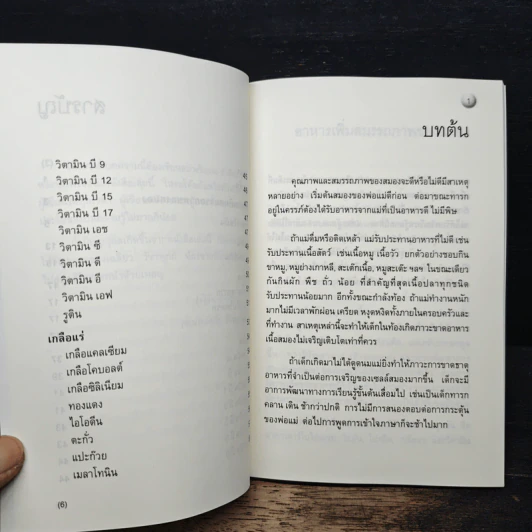 วิตามิน บี 9
วิตามิน บี 12
วิตามิน บี 15
วิตามิน บี 17
วิตามิน เอช
วิตามิน ซี
วิตามิน ดี
วิตามิน อี
วิตามิน เอฟ
รูติน
เกลือแร่
เกลือแคลเซียม
เกลือโคบอลต์
เกลือซิลิเนียม
ทองแดง
ไอโอดีน
ตะกั่ว
แปะก๊วย
เมลาโทนิน
(6)
1
บทต้น
คุณภาพและสมรรถภาพของสมองจะดีหรือไม่ดีมีสาเหตุ
หลายอย่าง เริ่มต้นสมองของพ่อแม่ดีก่อน ต่อมาขณะทารก
อยู่ในครรภ์ต้องได้รับอาหารจากแม่ที่เป็นอาหารดี ไม่มีพิษ
ถ้าแม่ดื่มหรือติดเหล้า แม่รับประทานอาหารที่ไม่ดี เช่น
รับประทานเนื้อสัตว์ เช่นเนื้อหมู เนื้อวัว ยกตัวอย่างชอบกิน
ขาหมู, หมูย่างเกาหลี, สะเต๊กเนื้อ, หมูสะเต๊ะ ฯลฯ ในขณะเดียว
กันกินผัก พืช ถั่ว น้อย ที่สำคัญที่สุดเนื้อปลาทุกชนิด
รับประทานน้อยมาก อีกทั้งขณะกำลังท้อง ถ้าแม่ทำงานหนัก
มากไม่มีเวลาพักผ่อน เครียด หงุดหงิดทั้งภายในครอบครัวและ
ที่ทำงาน สาเหตุเหล่านี้จะทำให้เด็กในท้องเกิดภาวะขาดอาหาร
เนื้อสมองไม่เจริญเติบโตเท่าที่ควร
ถ้าเด็กเกิดมาไม่ได้ดูดนมแม่ยิ่งทำให้ภาวะการขาดธาตุ
อาหารที่จำเป็นต่อการเจริญของเซลล์สมองมากขึ้น เด็กจะมี
อาการพัฒนาทางการเรียนรู้ขั้นต้นเสื่อมไป เช่นเป็นเด็กทารก
คลาน เดิน ช้ากว่าปกติ การไม่มีการสนองตอบต่อการกระตุ้น
ของพ่อแม่ ต่อไปการพูดการเข้าใจภาษาก็จะช้าไปมาก